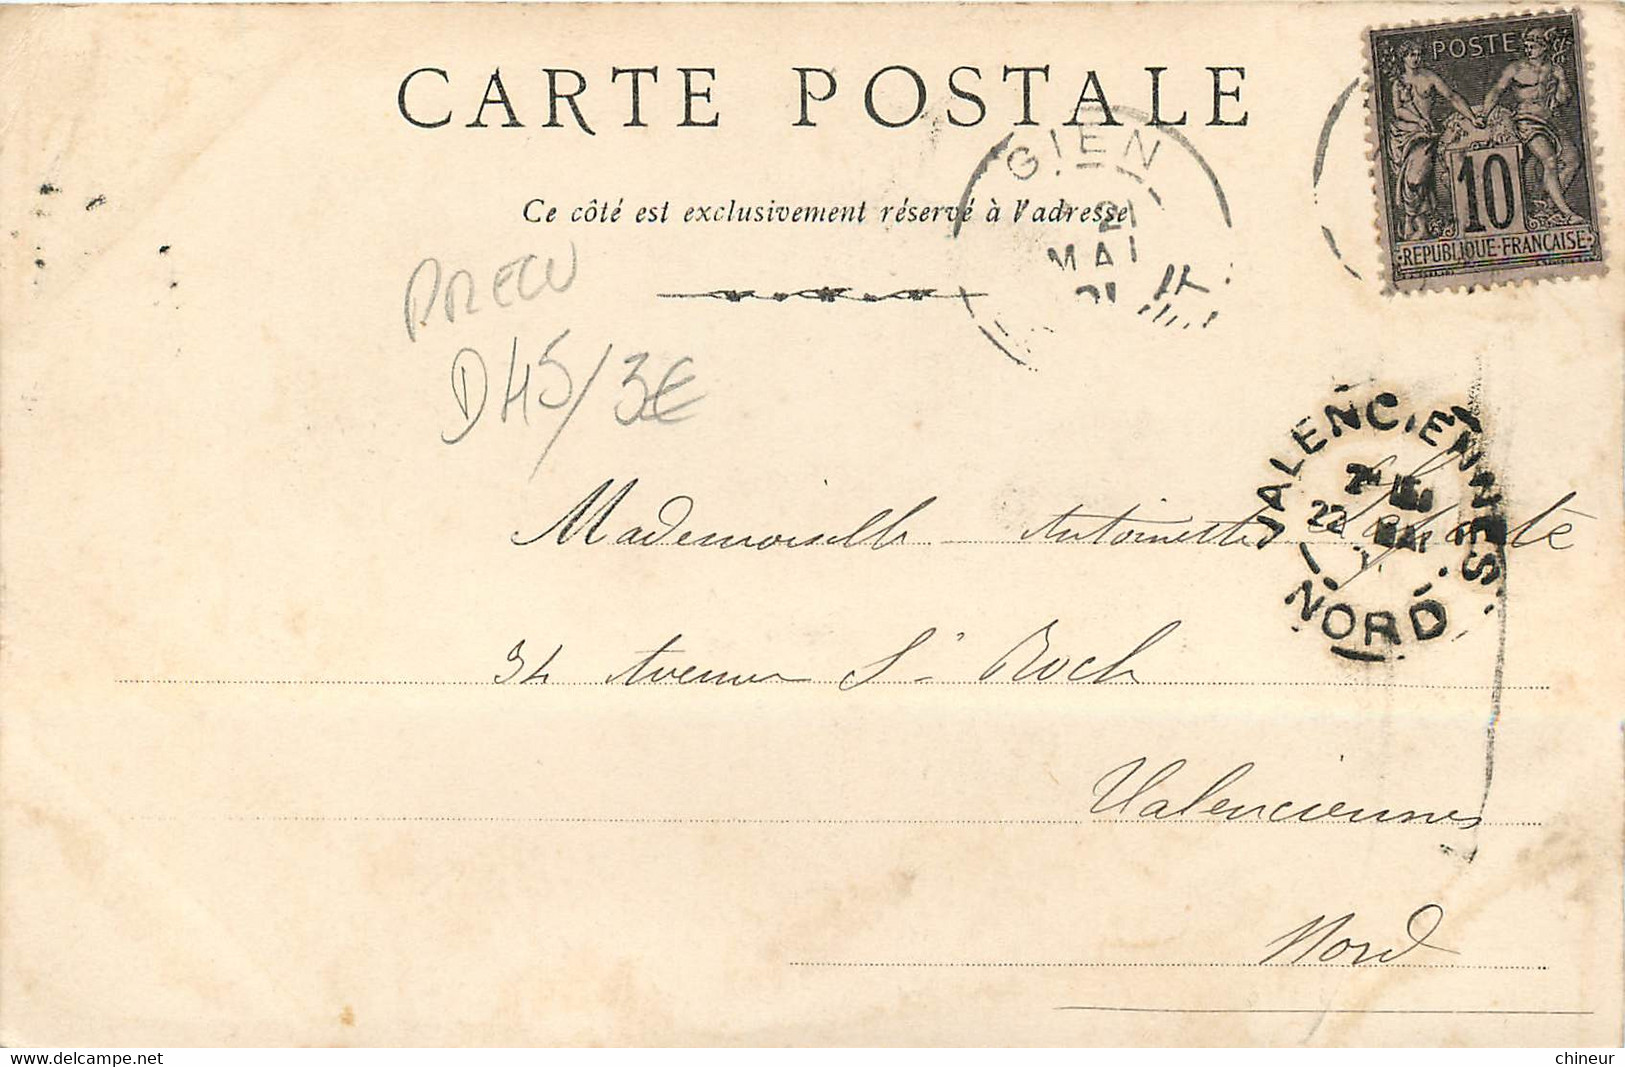 CARTE POSTALE
POSTE
10
REPUBLIQUE FRANCAISE
GIEN
21
MAI
Ce côté est exclusivement réservé à l'adresse
D45/3€
VALENCIENNES
22
NORD
Mademoiselle Antoinette
34 Avenue St Roch
Valenciennes
Nord
delcampe.net
chineur